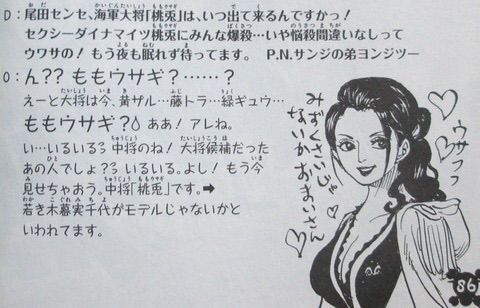 D：尾田センセ、海軍大将「桃兎」は、いつ出て来るんですかっ！
セクシーダイナマイツ桃兎にみんな爆殺…いや悩殺間違いなしって
ウワサの！もう夜も眠れず待ってます。 P.N.サンジの弟ヨンジツー
O：ん?? ももウサギ？……？
えーと大将は今、黄ザル…藤トラ…緑ギュウ…
ももウサギ？ ああ！アレね。
い…いるいる？中将のね！大将候補だった
あの人でしょ？いるいる。よし！もう今
見せちゃおう。中将「桃兎」です。➡
若き木暮実千代がモデルじゃないかと
いわれてます。
ウサフフ
みずくさいじゃ
ないかおまいさん
86